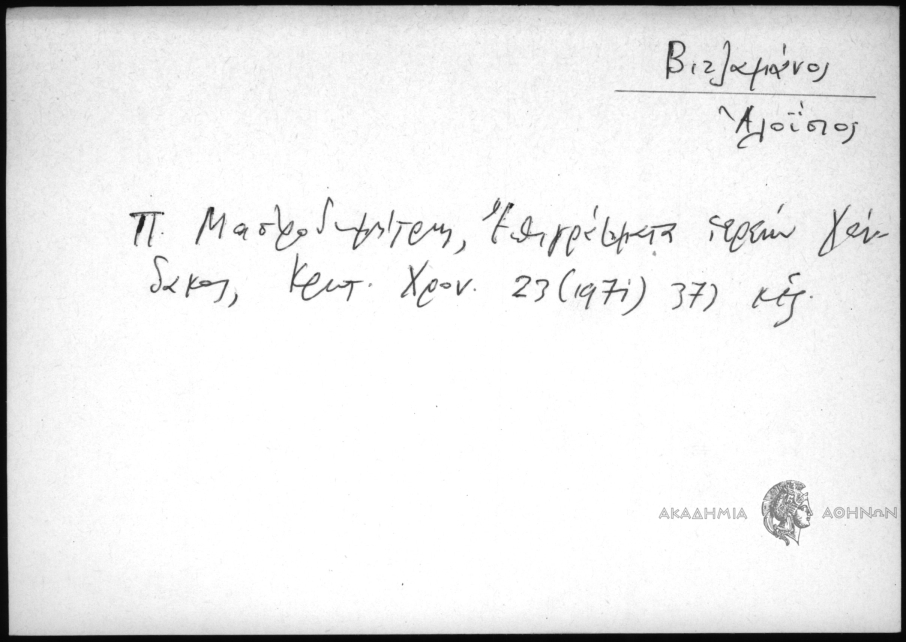 Βιτζαμάνος
Ἀλοΐσιος
Π. Μαστροδημήτρης, Ἐπιγράμματα ἱερέων Χάν-
δακος, Κρητ. Χρον. 23 (1971) 377 κἑξ.
ΑΚΑΔΗΜΙΑ ΑΘΗΝΩΝ